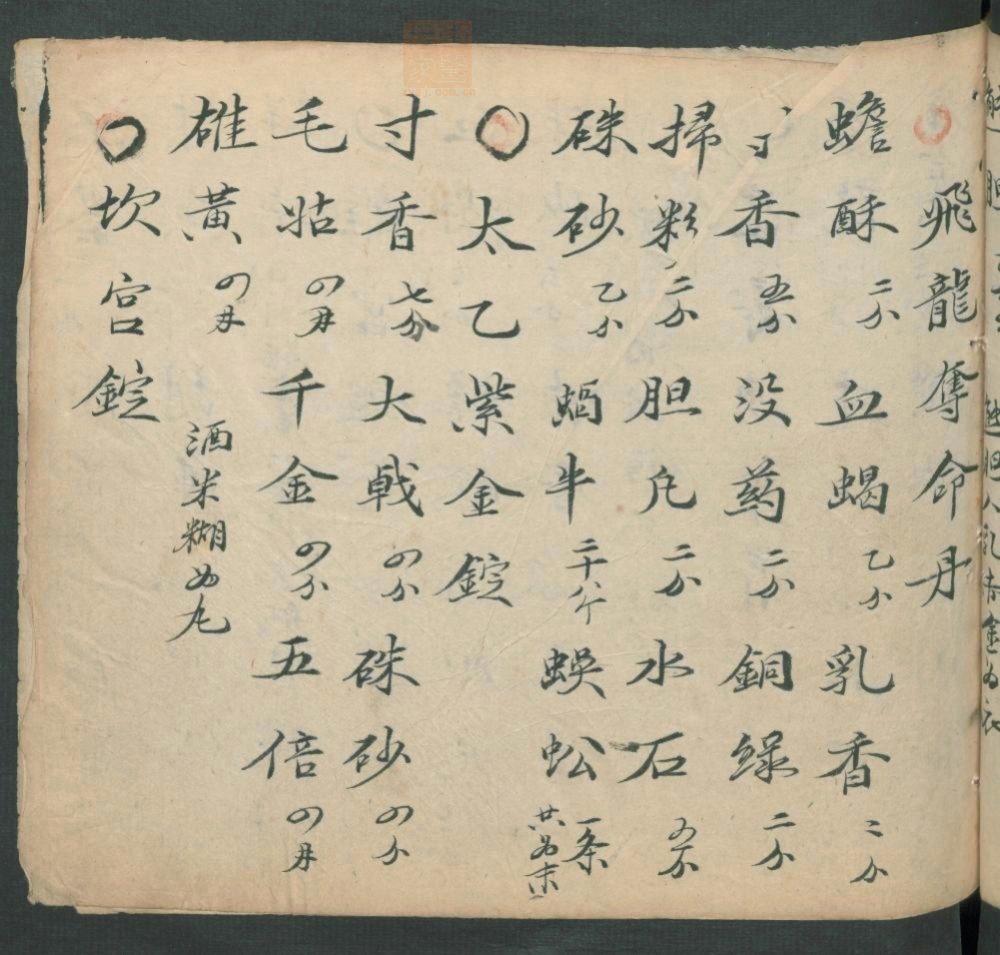 飛龍奪命丹
蟾酥二分 血蝎乙分 乳香二分
寸香五分 没药二分 銅緑二分
掃粉二分 胆凡二分 水石五分
硃砂乙分 蝸牛二十八个 蜈蚣一条 共為末
太乙紫金錠
寸香七分 大戟四分 硃砂四分
毛姑四 千金四分 五倍四
雄黃四 酒米糊為丸
坎宮錠